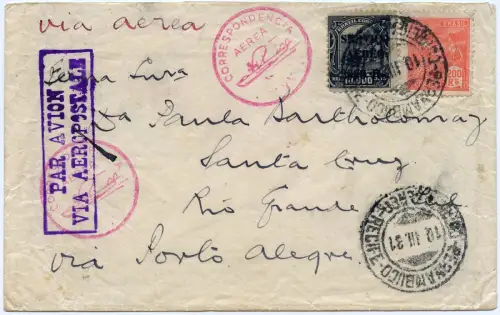 via aerea
CORRESPONDENCIA
AEREA
BRASIL CORREIO
10.000
BRASIL
2000
RS
PERNAMBUCO
PAR AVION
VIA AEROPOSTALE
Paula Bartholomay
Santa Cruz
Rio Grande
via Porto Alegre
PERNAMBUCO
RECIFE
10 III 31